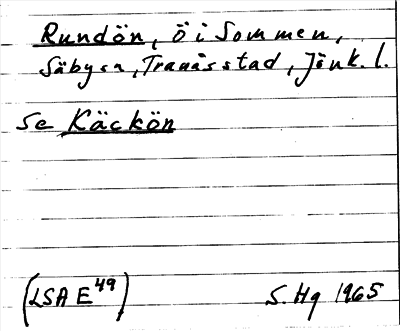 Rundön, ö i Sommen,
Säbysn, Tranås stad, Jönk. l.
Se Käckön
(LSA E49) S. Hg 1965